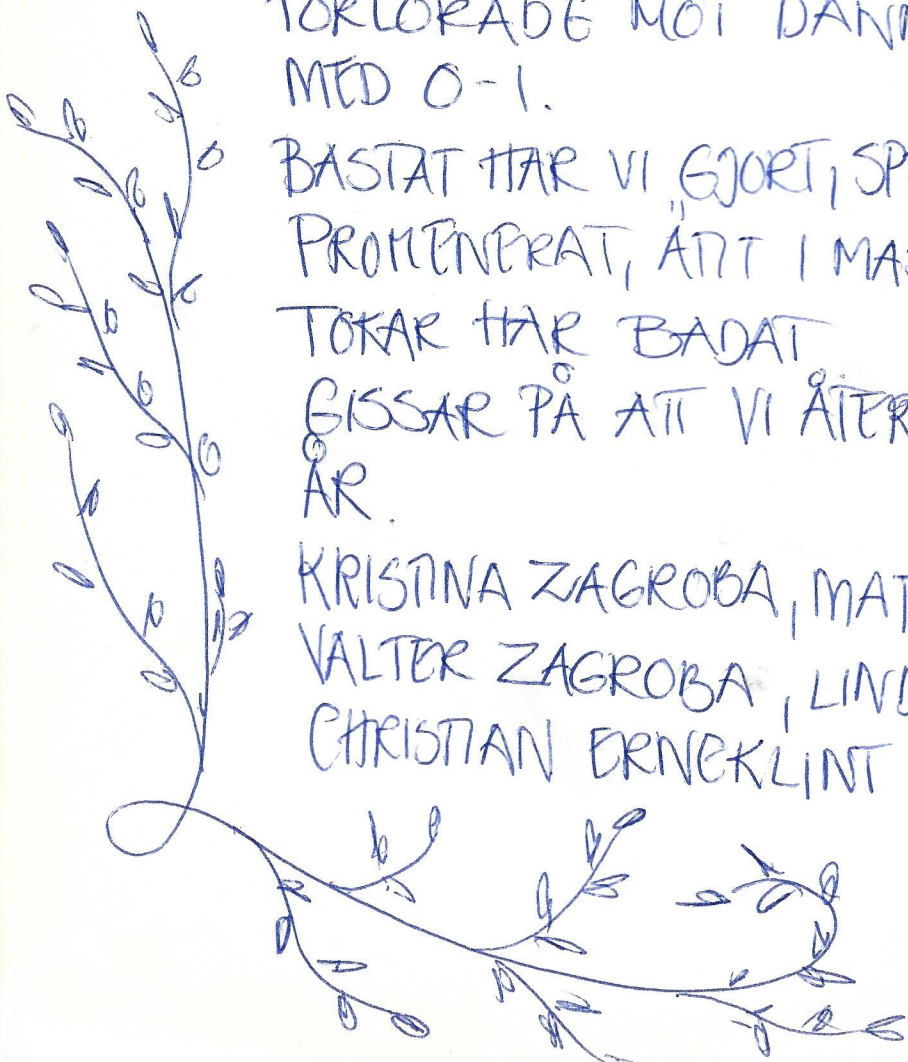 FÖRLORADE MOT DAN
MED 0-1.
BASTAT HAR VI GJORT, SP
PROMENERAT, ÄTIT I MA
TOKAR HAR BADAT
GISSAR PÅ ATT VI ÅTER
ÅR.
KRISTINA ZAGROBA, MAT
VALTER ZAGROBA, LIND
CHRISTIAN ERNEKLINT